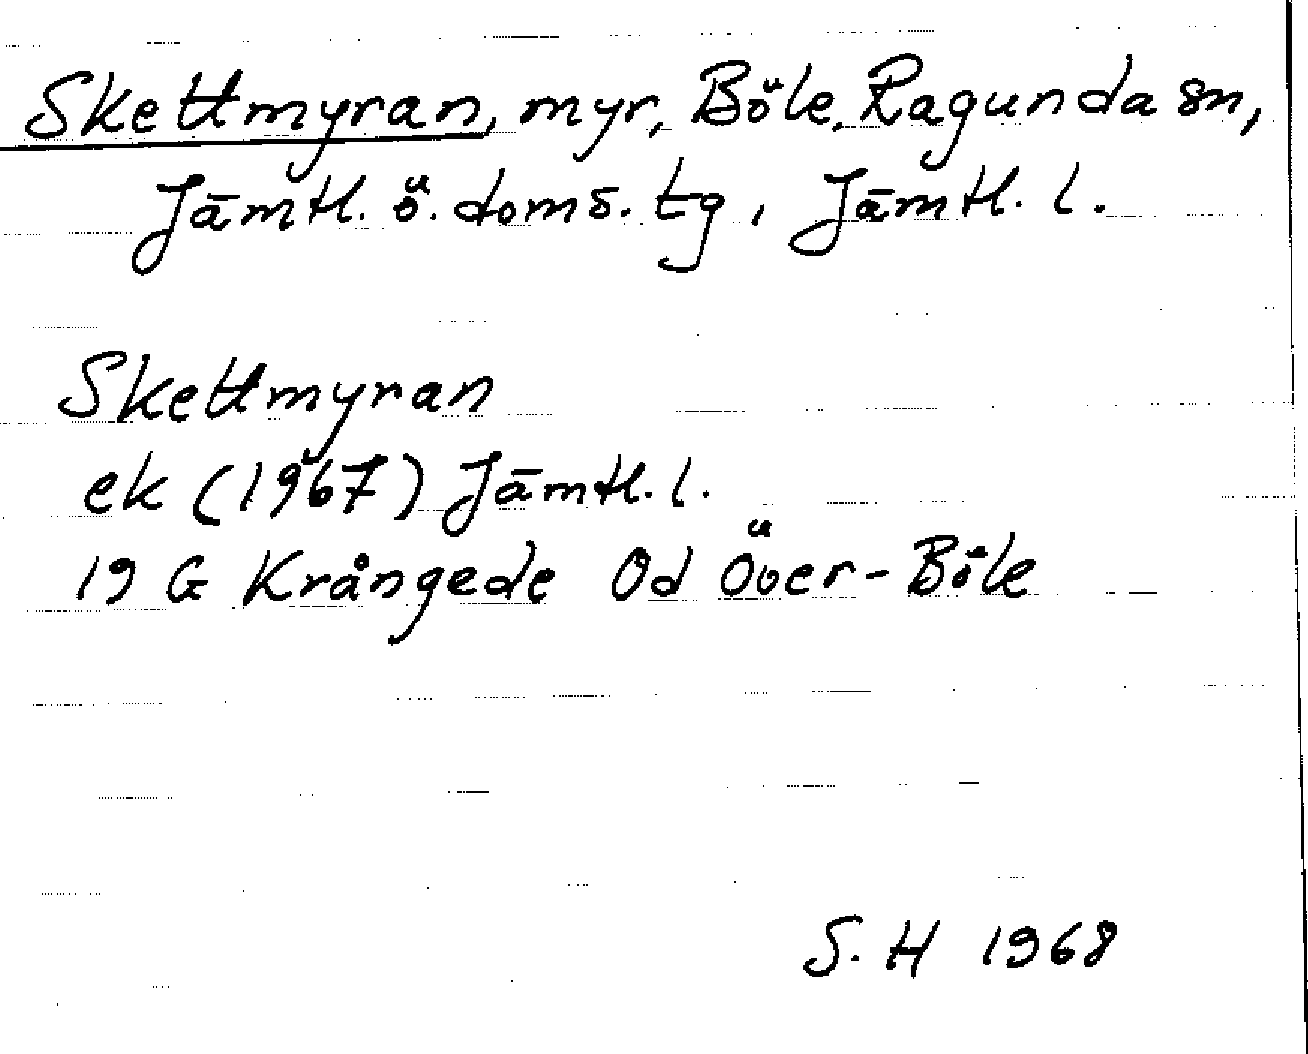 Skettmyran, myr, Böle, Ragunda sn,
Jämtl. ö. doms. tg, Jämtl. l.
Skettmyran
ek (1967) Jämtl. l.
19 G Krångede Od Över-Böle
S. H 1968